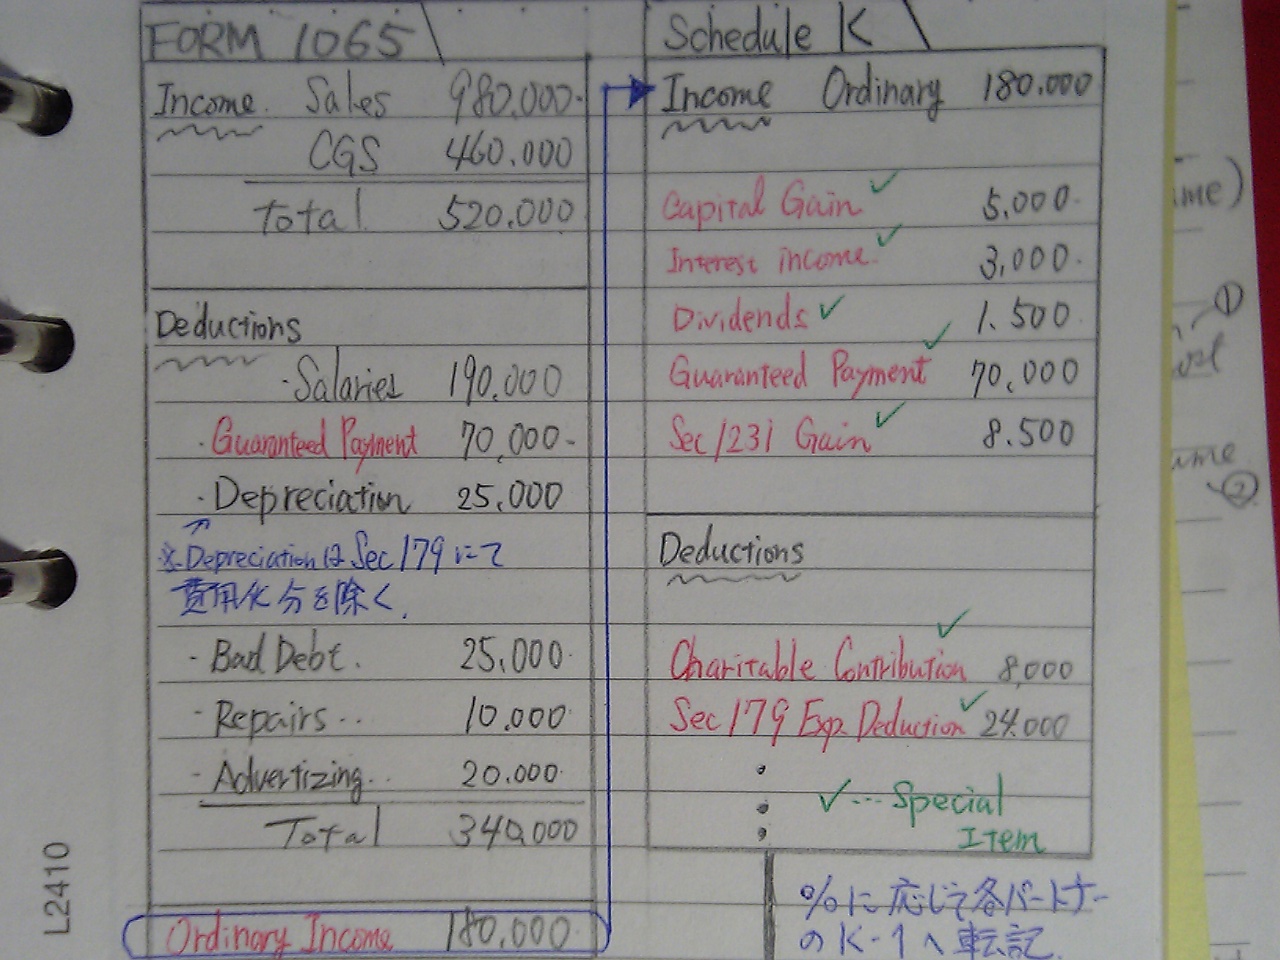 FORM 1065
Income. Sales 980.000.
CGS 460.000
Total 520.000
Deductions
・Salaries 190.000
・Guaranteed Payment 70,000-
・Depreciation 25,000
※Depreciationは Sec179にて
費用化分を除く.
- Bad Debt. 25,000.
- Repairs.. 10.000.
- Advertizing.. 20.000.
Total 340,000
Ordinary Income 180,000.
Schedule K
Income Ordinary 180.000
Capital Gain ✓ 5,000.
Interest income. ✓ 3,000.
Dividends ✓ 1.500
Guaranteed Payment ✓ 70,000
Sec1231 Gain ✓ 8.500
Deductions
Charitable Contribution ✓ 8,000
Sec179 Exp. Deduction ✓ 24.000
✓---Special
Item
%に応じて各パートナー
のK-1へ転記.
L2410
me)
①
②